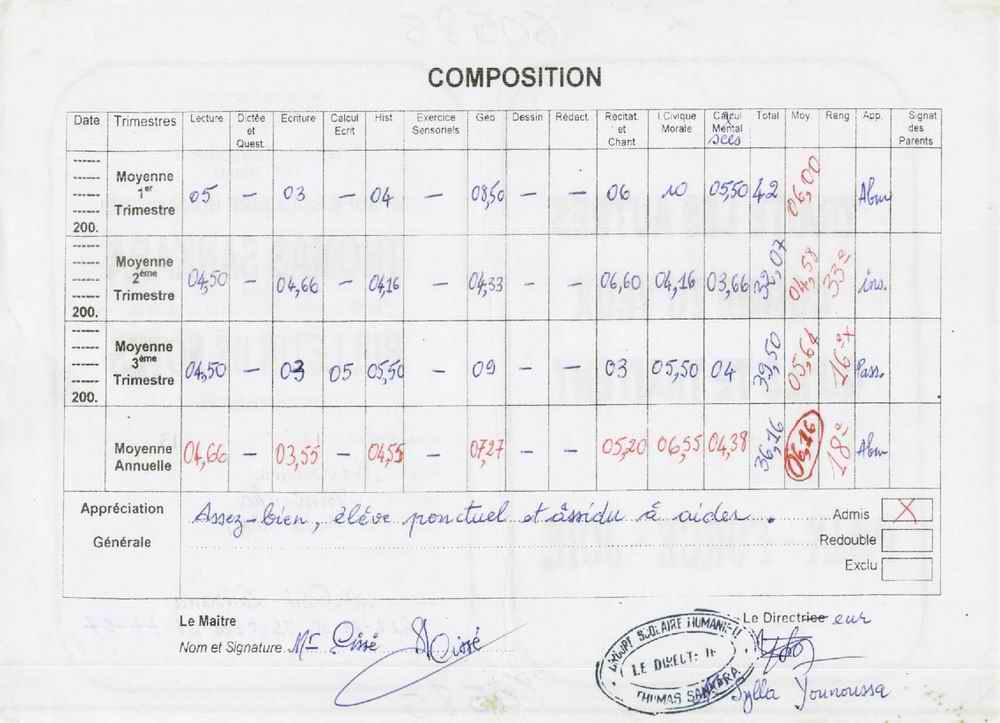 COMPOSITION
Date Trimestres Lecture Dictée et Quest. Ecriture Calcul Ecrit Hist Exercice Sensoriels Géo Dessin Rédact. Récitat. et Chant I.Civique Morale Calcul Mental Total Moy. Rang App. Signat des Parents
Moyenne 1er Trimestre 200. 05 – 03 – 04 – 08,50 – – 06 10 05,50 42 06,00
Moyenne 2ème Trimestre 200. 04,50 – 04,66 – 04,16 – 04,33 – – 06,60 04,16 03,66 32,07 04,58 33e ins.
Moyenne 3ème Trimestre 200. 04,50 – 03 05 05,50 – 09 – – 03 05,50 04 39,50 05,64 16e Pass.
Moyenne Annuelle 04,66 – 03,55 – 04,55 – 07,27 – – 05,20 06,55 04,38 36,16 06,16 18e
Appréciation Générale
Assez-bien, élève ponctuel et assidu à aider.
Admis X
Redouble
Exclu
Le Maître
Nom et Signature Mr Cissé Cissé
Le Directrice eur
GROUPE SCOLAIRE HUMANITE
LE DIRECTEUR
THOMAS SANKARA
Sylla Younoussa